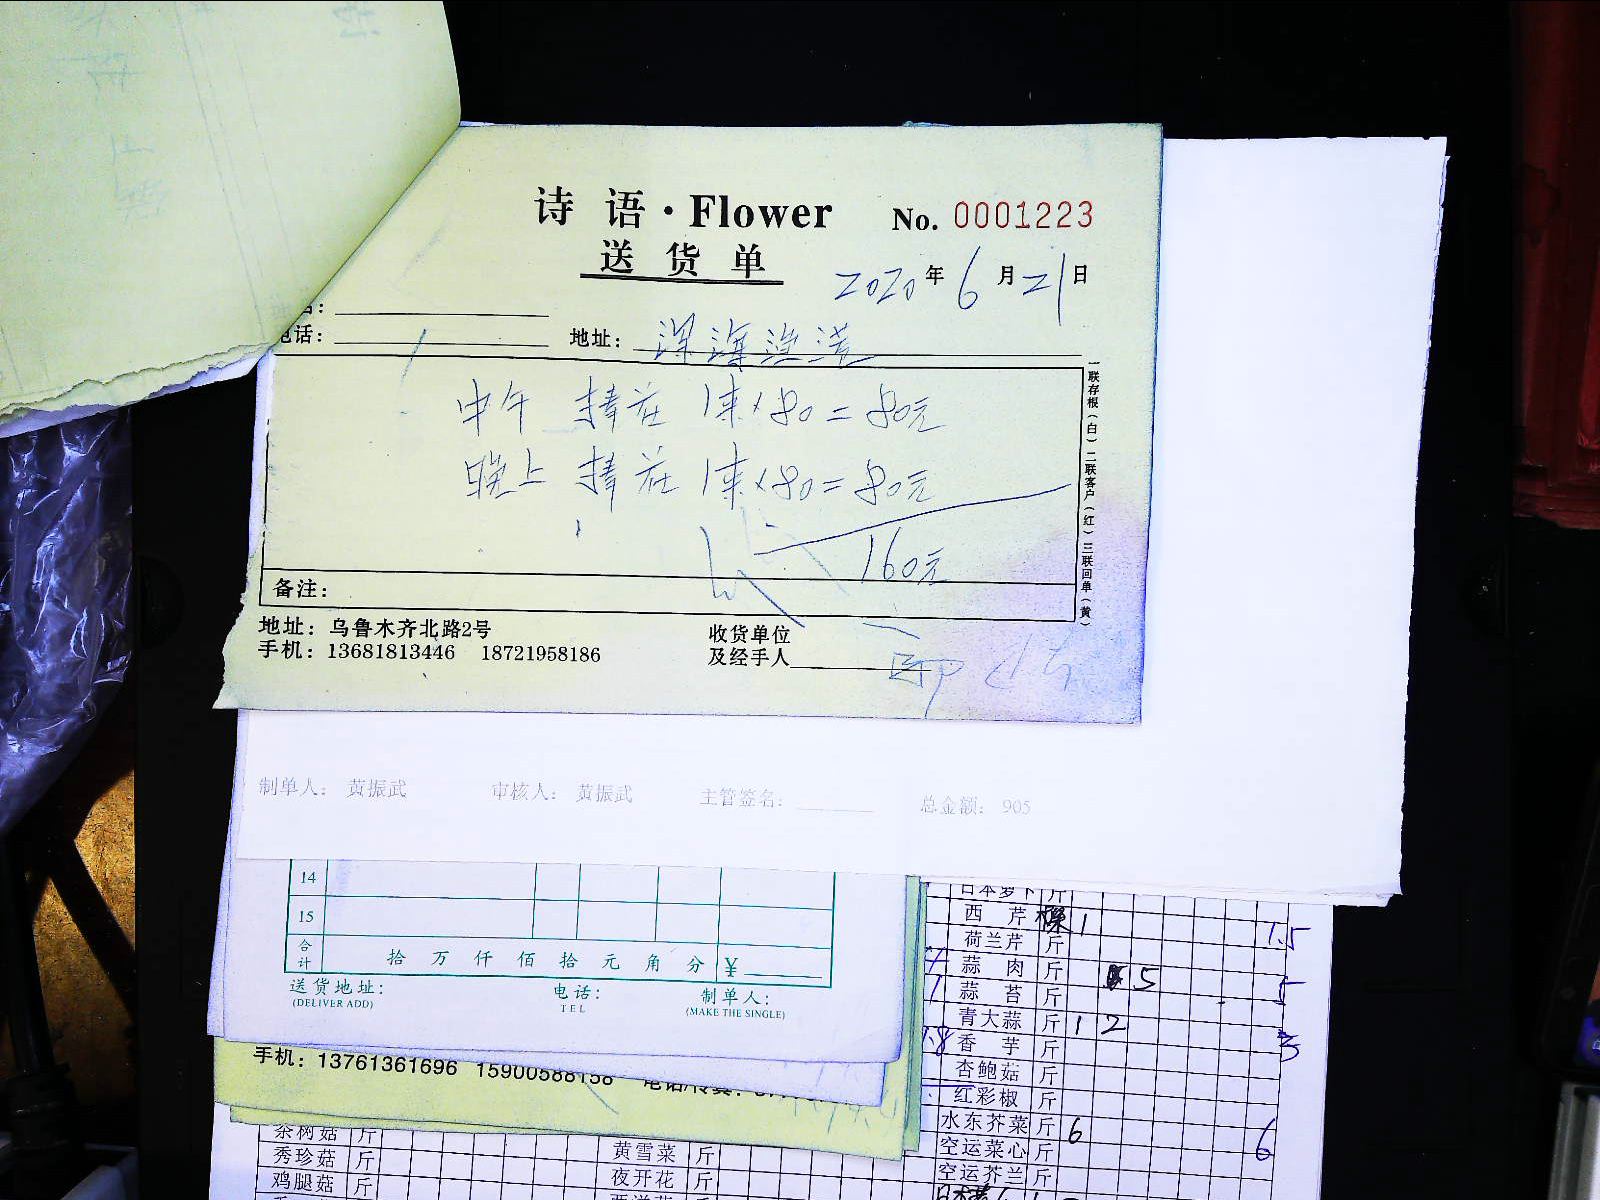 诗 语·Flower
No. 0001223
送 货 单
2020年6月21日
名：
电话：
地址：深海渔港
中午 捧花 1束×80=80元
晚上 捧花 1束×80=80元
160元
一联存根（白）二联客户（红）三联回单（黄）
备注：
地址：乌鲁木齐北路2号
手机：13681813446 18721958186
收货单位
及经手人
制单人： 黄振武 审核人： 黄振武 主管签名： 总金额： 905
14
15
合计 拾 万 仟 佰 拾 元 角 分 ￥
送货地址：
(DELIVER ADD)
电话：
TEL
制单人：
(MAKE THE SINGLE)
手机：13761361696 15900588158 电话/传真：
日本萝卜 斤
西 芹 1 1.5
荷兰芹 斤
蒜 肉 斤 5 5
蒜 苔 斤
青大蒜 斤 1 2 3
香 芋 斤
杏鲍菇 斤
红彩椒 斤
水东芥菜 斤 6 6
空运菜心 斤
空运芥兰 斤
茶树菇 斤
秀珍菇 斤
鸡腿菇 斤
黄雪菜 斤
夜开花 斤